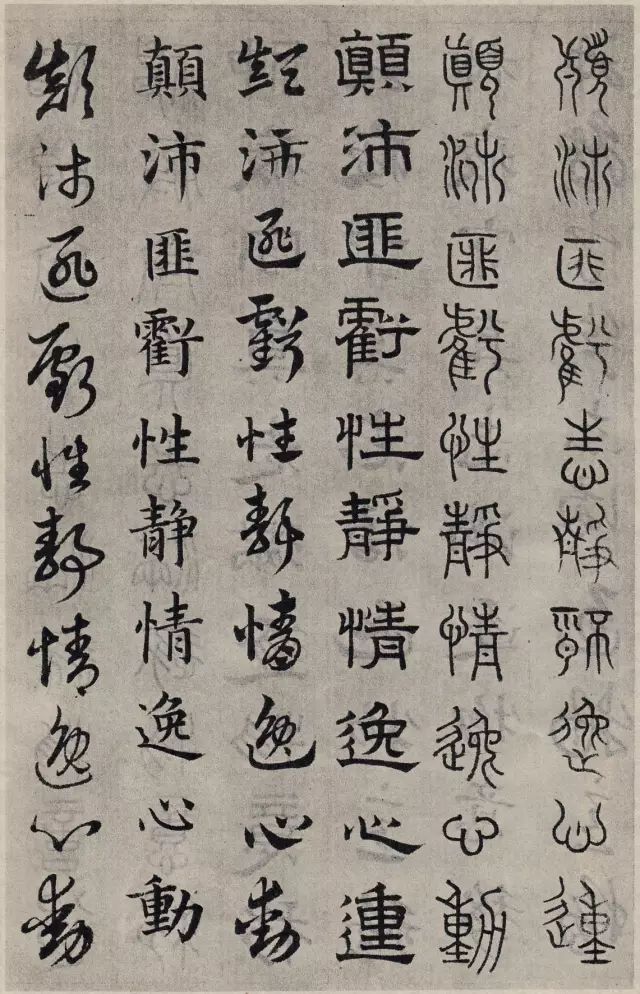 顛沛匪虧性靜情逸心動
顛沛匪虧性靜情逸心動
顛沛匪虧性靜情逸心動
顛沛匪虧性靜情逸心動
顛沛匪虧性静情逸心動
顛沛匪虧性靜情逸心動